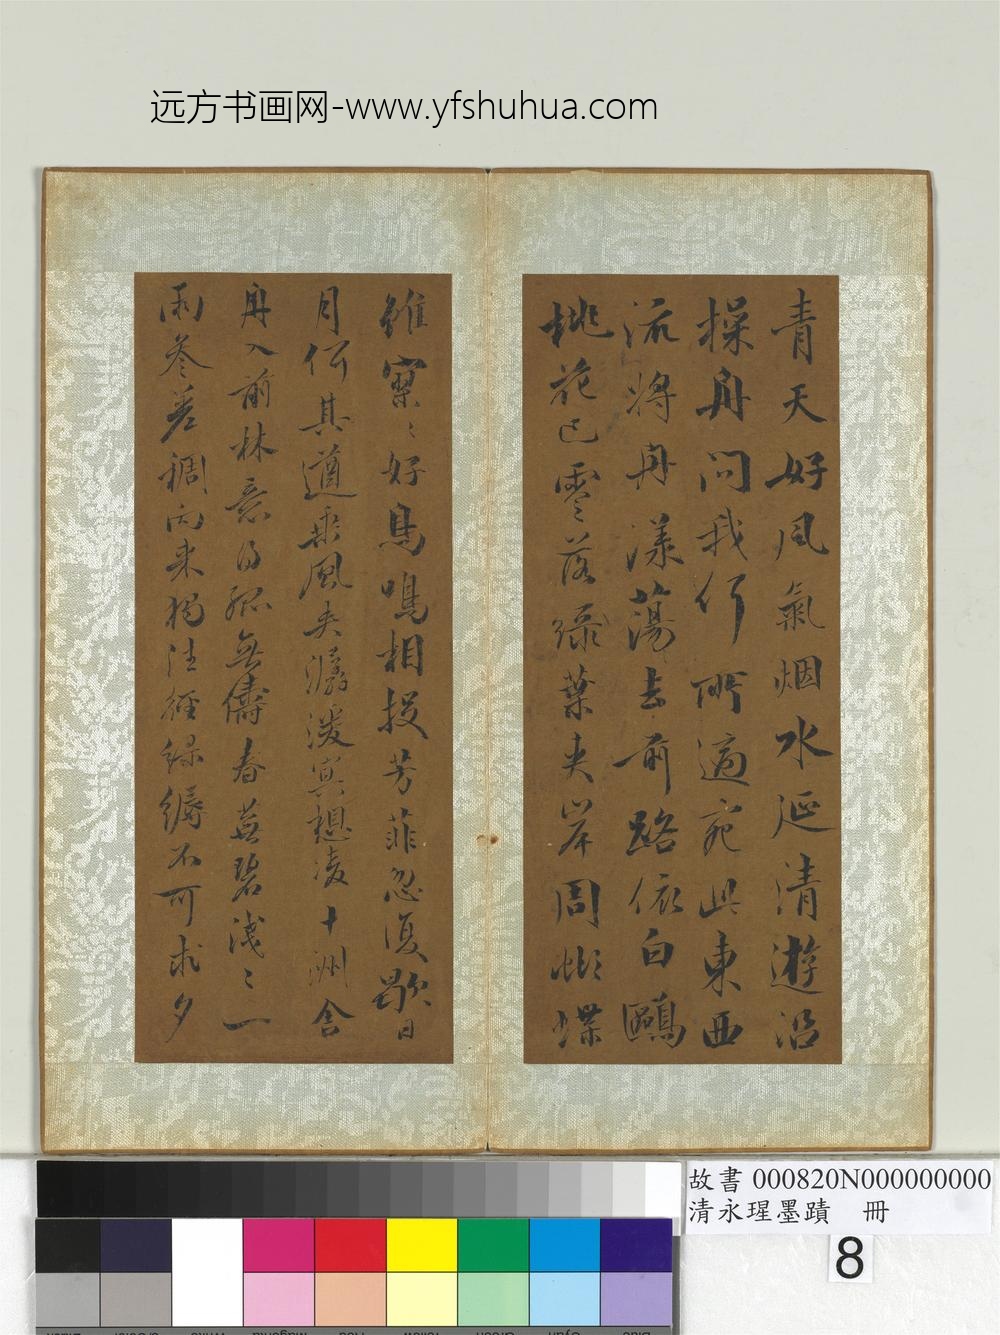 远方书画网-www.yfshuhua.com
青天好風氣烟水延清遊沿
操舟问我何所適宛此東西
流將舟漾蕩去前路依白鷗
桃花已零落綠葉夹岸周蝴蝶
雖寂〻好鳥鳴相投芳菲忽復歇日
月何其遒乘風夹瀰漫冥想凌十洲舍
舟入前林意得孤無儔春草碧淺〻一
雨叅差稠而来獨往徑綠縟不可求夕
故書 000820N000000000
清永瑆墨蹟 冊
8